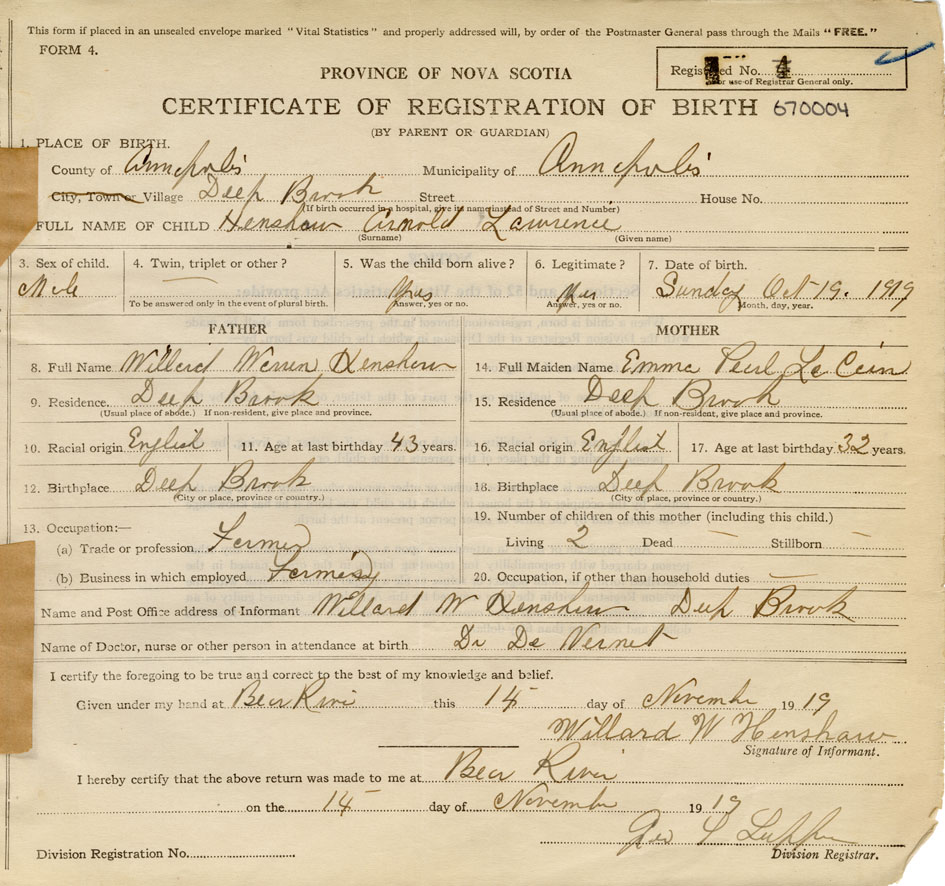 This form if placed in an unsealed envelope marked "Vital Statistics" and properly addressed will, by order of the Postmaster General pass through the Mails "FREE."
FORM 4.
Registered No. 4
For use of Registrar General only.
PROVINCE OF NOVA SCOTIA
CERTIFICATE OF REGISTRATION OF BIRTH 670004
(BY PARENT OR GUARDIAN)
1. PLACE OF BIRTH.
County of Annapolis Municipality of Annapolis
City, Town or Village Deep Brook Street House No.
(If birth occurred in a hospital, give its name instead of Street and Number)
FULL NAME OF CHILD Henshaw Arnold Lawrence
(Surname) (Given name)
3. Sex of child. 4. Twin, triplet or other? 5. Was the child born alive? 6. Legitimate? 7. Date of birth.
Male — Yes Yes Sunday Oct 19. 1919
To be answered only in the event of plural birth. Answer, yes or no. Answer, yes or no. Month, day, year.
FATHER MOTHER
8. Full Name Willard Warren Henshaw 14. Full Maiden Name Emma Pearl Le Cain
9. Residence. Deep Brook 15. Residence Deep Brook
(Usual place of abode.) If non-resident, give place and province. (Usual place of abode.) If non-resident, give place and province.
10. Racial origin English 11. Age at last birthday 43 years. 16. Racial origin English 17. Age at last birthday 32 years.
12. Birthplace Deep Brook 18. Birthplace Deep Brook
(City or place, province or country.) (City or place, province or country.)
13. Occupation:— 19. Number of children of this mother (including this child.)
(a) Trade or profession Farmer Living 2 Dead — Stillborn —
(b) Business in which employed Farming 20. Occupation, if other than household duties —
Name and Post Office address of Informant Willard W Henshaw Deep Brook
Name of Doctor, nurse or other person in attendance at birth Dr De Vernet
I certify the foregoing to be true and correct to the best of my knowledge and belief.
Given under my hand at Bear River this 14 day of November 1919
Willard W Henshaw
Signature of Informant.
I hereby certify that the above return was made to me at Bear River
on the 14 day of November 1919
Geo L
Division Registration No. Division Registrar.